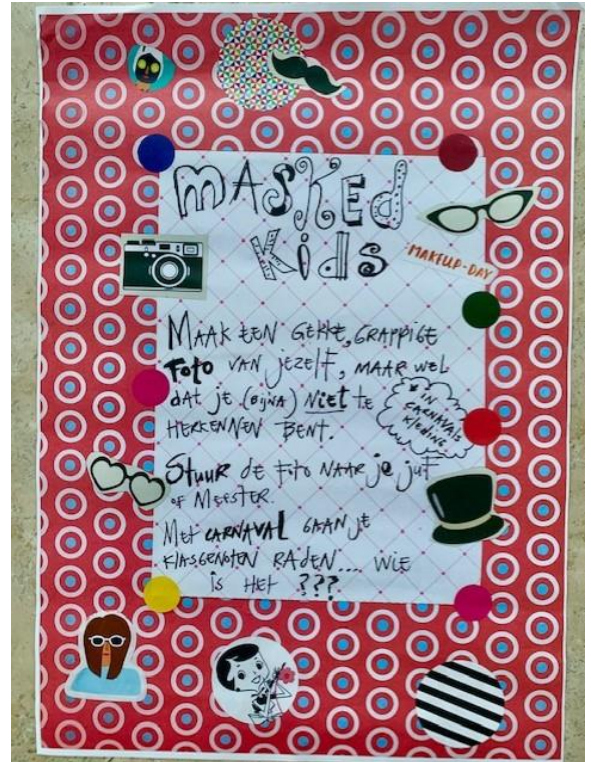 MASKED
Kids
MAKEUP-DAY
MAAK EEN GEKKE, GRAPPIGE
FOTO VAN JEZELF, MAAR WEL
DAT JE (BIJNA) NIET te
HERKENNEN BENT.
* IN
CARNAVALS
KLEDING
STUUR de FOTO NAAR je juf
OF MEESTER.
Met CARNAVAL GAAN JE
KLASGENOTEN RADEN... WIE
is HET ???